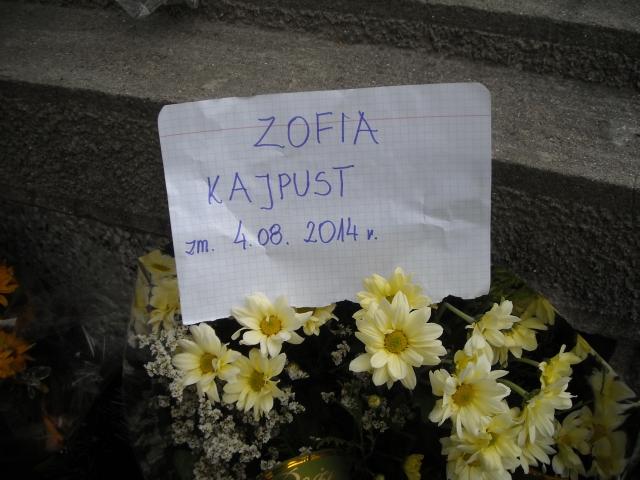 ZOFIA
KAJPUST
zm. 4.08. 2014 r.